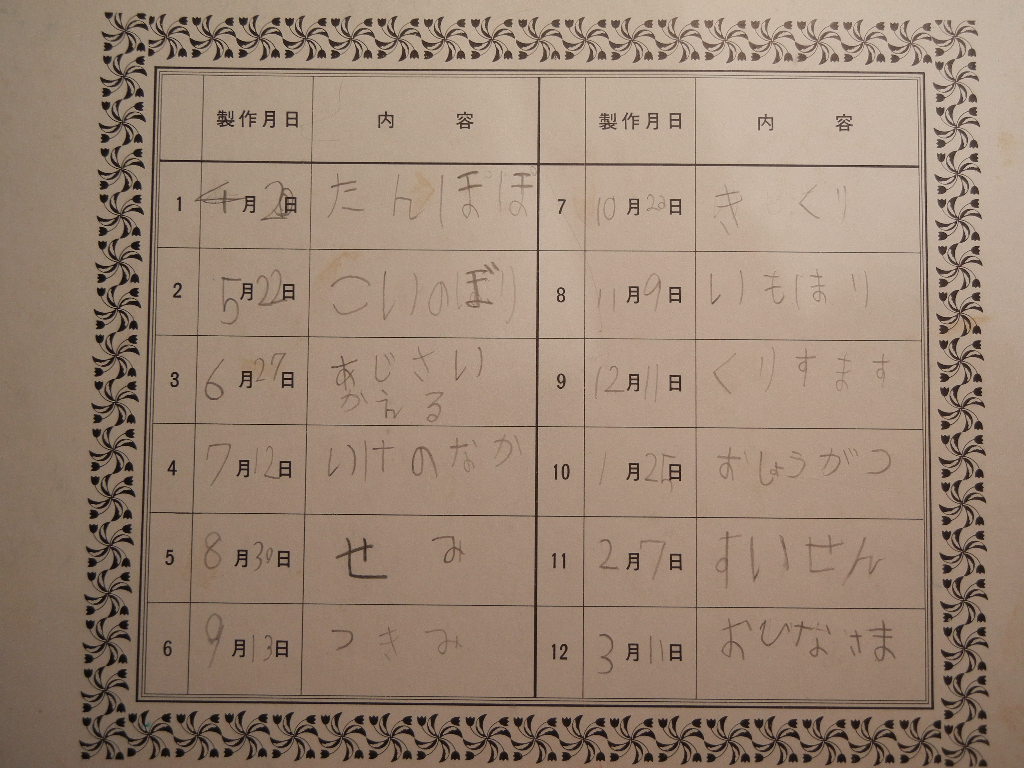 製作月日 内容 製作月日 内容
1 4月28日 たんぽぽ 7 10月22日 きくり
2 5月22日 こいのぼり 8 11月9日 いもほり
3 6月27日 あじさい
かえる 9 12月11日 くりすます
4 7月12日 いけのなか 10 1月25日 おしょうがつ
5 8月30日 せみ 11 2月7日 すいせん
6 9月13日 つきみ 12 3月11日 おひなさま